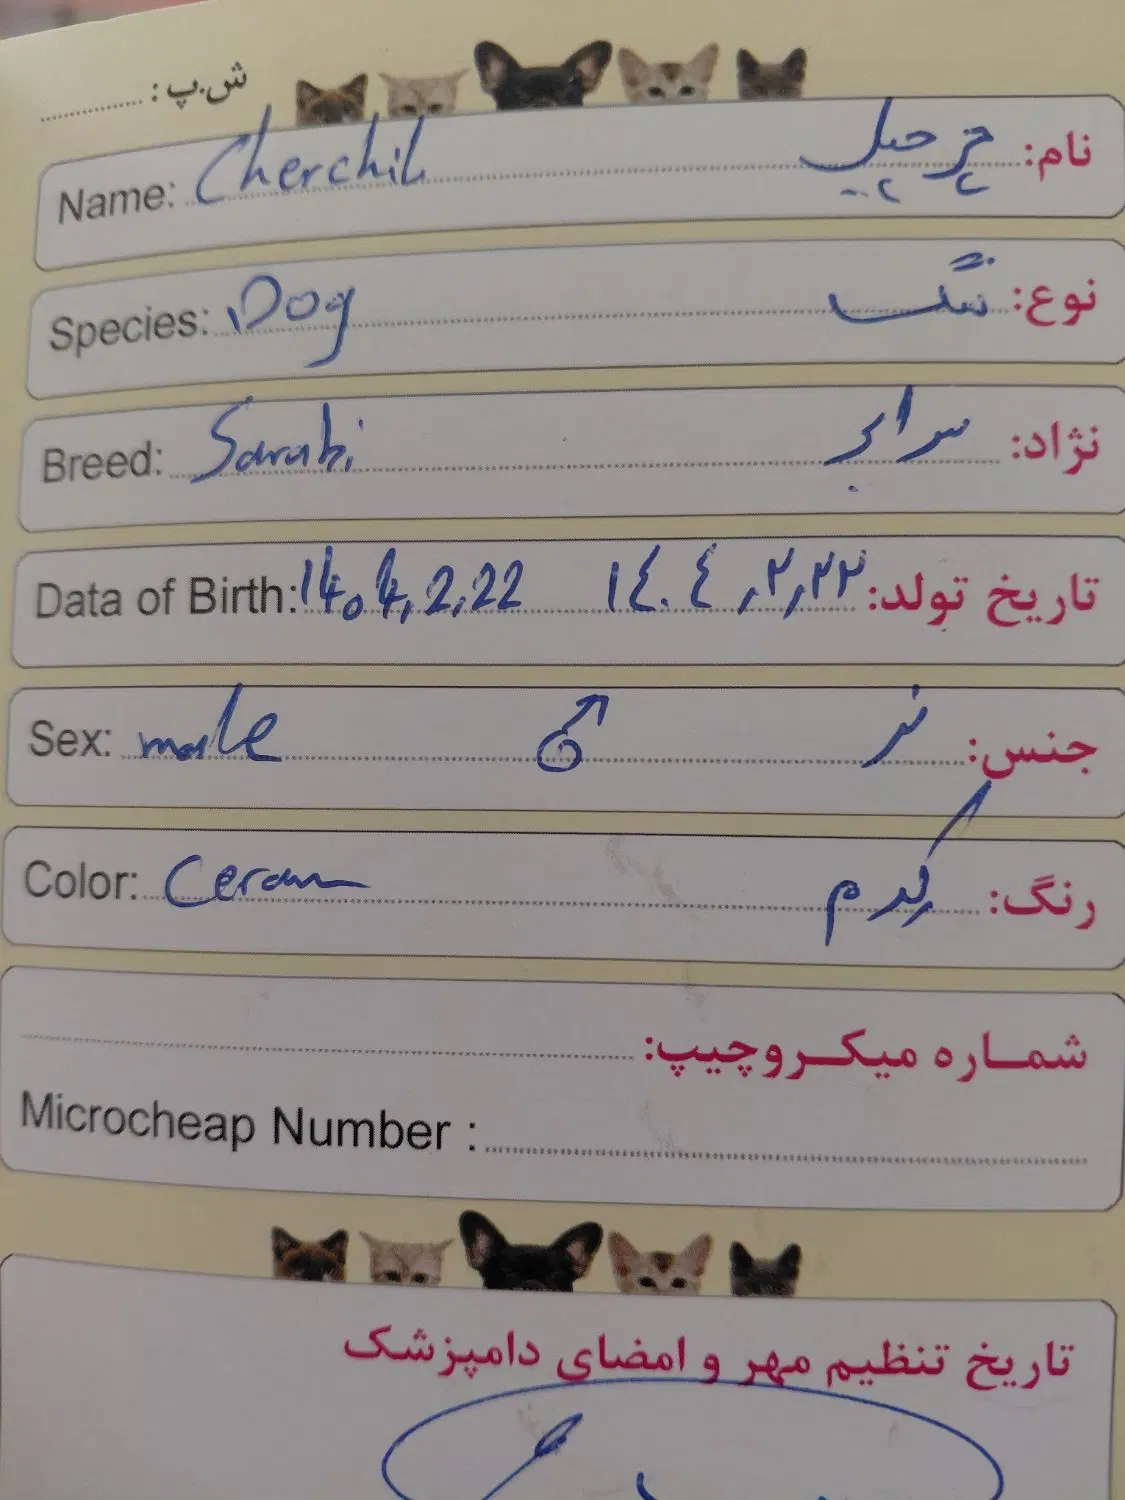 ش.پ:
Name: Cherchil نام: چرچیل
Species: Dog نوع: سگ
Breed: Sarabi نژاد: سرابی
Data of Birth: 1404,2,22 تاریخ تولد: ۱٤۰٤,۲,۲۲
Sex: male ♂ جنس: نر
Color: Ceram رنگ: کرم
شماره میکروچیپ:
Microcheap Number :
تاریخ تنظیم مهر و امضای دامپزشک